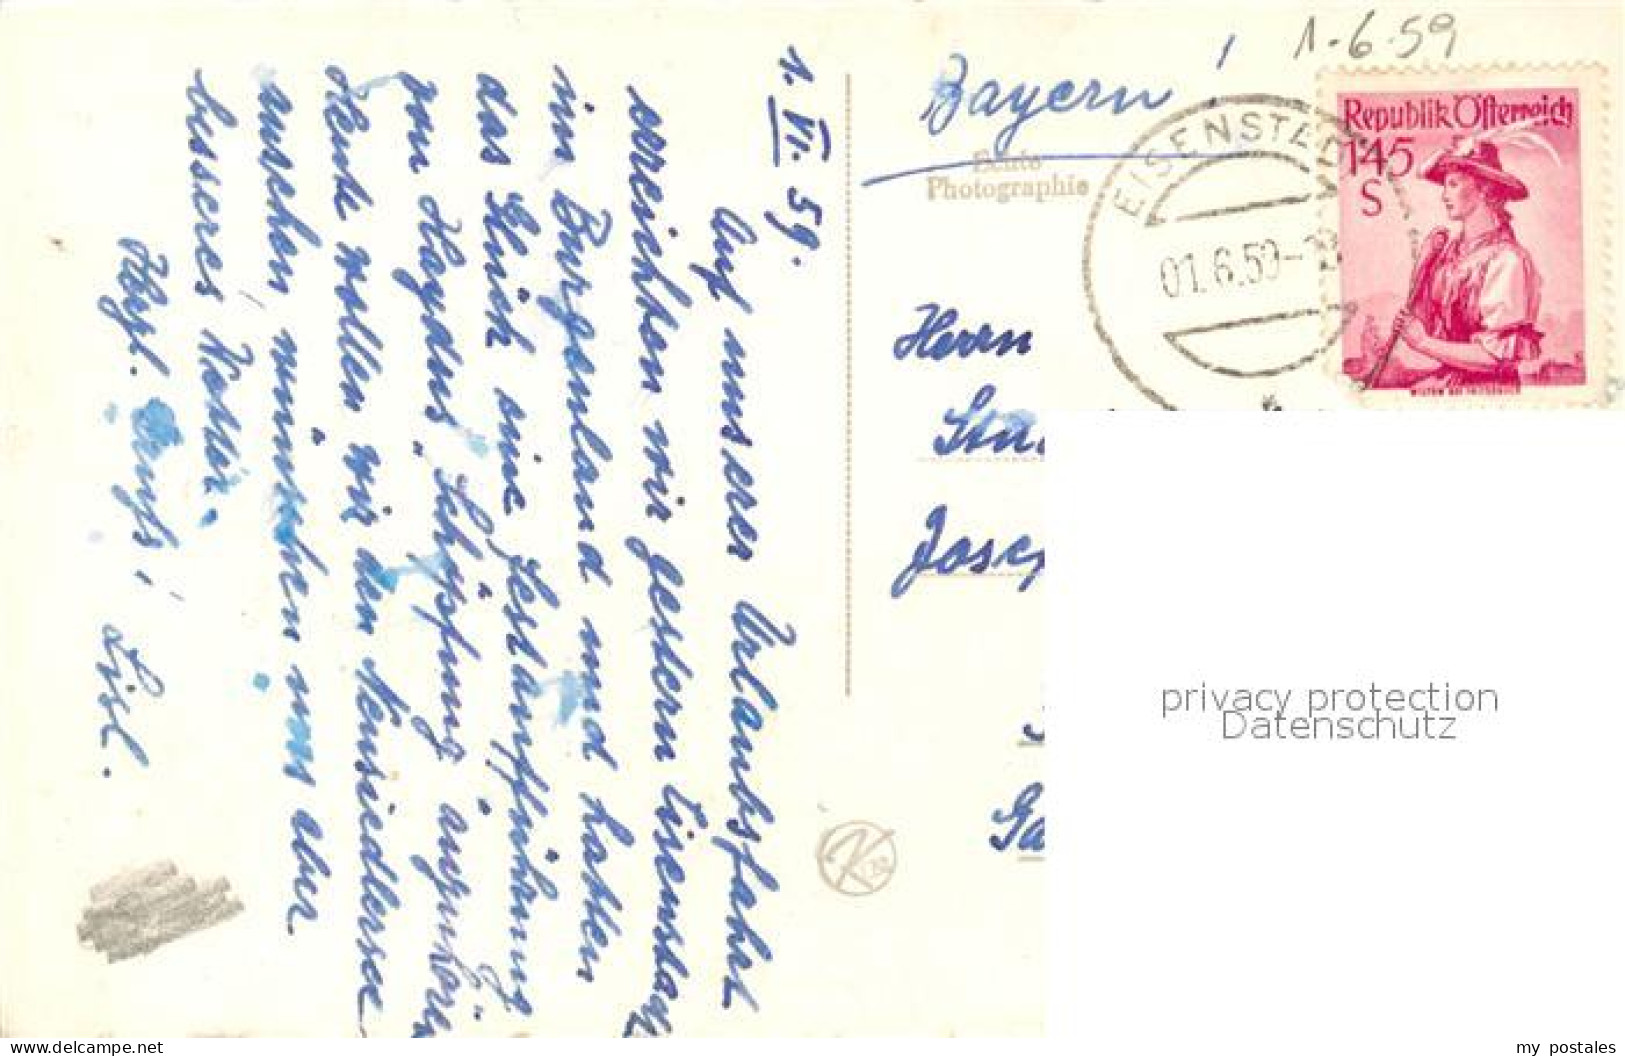 1. VI. 59.
Auf unserer Urlaubsfahrt
erreichten wir gestern Eisenstadt
im Burgenland und hatten
das Glück eine Festaufführung
von Haydns "Schöpfung" anzuhören
Heute wollen wir den Neusiedlersee
anschen, wünschen uns aber
besseres Wetter.
Herzl. Liesl.
1.6.59
Bayern
Echte
Photographie
EISENSTADT
01.6.59-
Republik Österreich
145
S
Herrn
Stu
Josep
Ga
K
privacy protection
Datenschutz
www.delcampe.net
my_postales